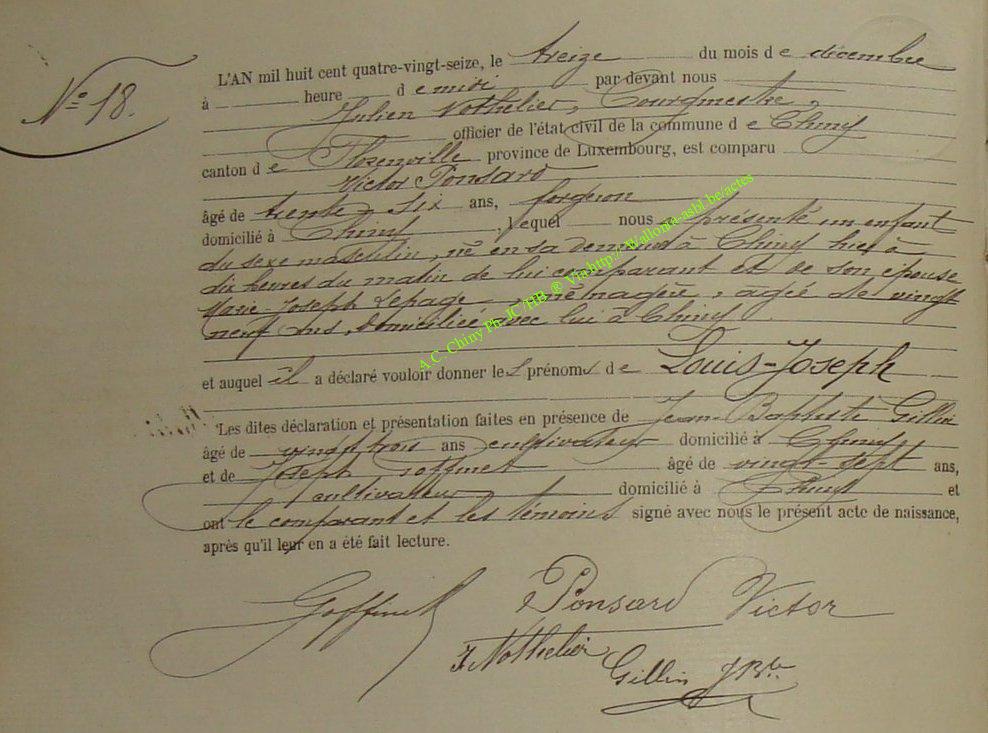 N° 18.
L'AN mil huit cent quatre-vingt-seize, le treize du mois de décembre
à heure de midi par devant nous
Julien Nothelier, Bourgmestre,
officier de l'état civil de la commune de Chiny
canton de Florenville province de Luxembourg, est comparu
Victor Ponsard
âgé de trente six ans, forgeron
domicilié à Chiny, lequel nous a présenté un enfant
du sexe masculin, né en sa demeure à Chiny hier à
dix heures du matin de lui comparant et de son épouse
Marie Joseph Lepage, ménagère, âgée de vingt
neuf ans, domiciliée avec lui à Chiny
et auquel il a déclaré vouloir donner les prénoms de Louis-Joseph
Les dites déclaration et présentation faites en présence de Jean Baptiste Gillin
âgé de vingt trois ans cultivateur domicilié à Chiny
et de Joseph Goffinet âgé de vingt-sept ans,
cultivateur domicilié à Chiny et
ont le comparant et les témoins signé avec nous le présent acte de naissance,
après qu'il leur en a été fait lecture.
Goffinet Ponsard Victor
J Nothelier Gillin J Bte
A.C. Chiny Ph. JC /HB ® Via http://Wallonia-asbl.be/actes